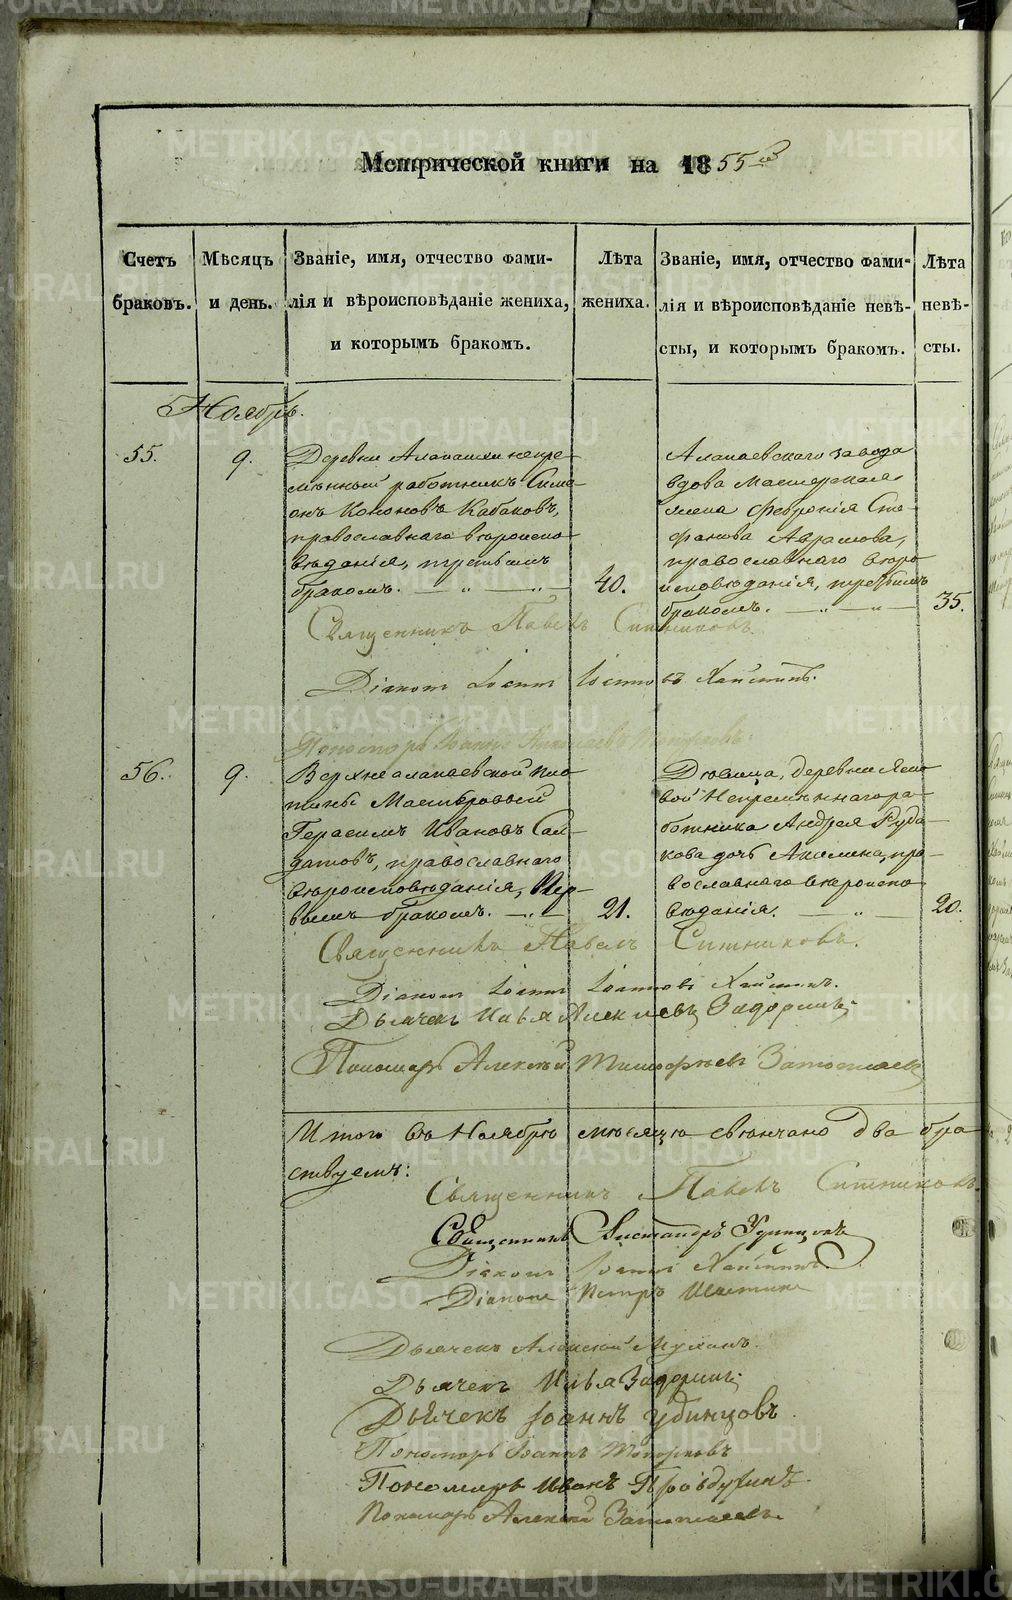 Метрической книги на 1855й
Счетъ браковъ.
Мѣсяцъ и день.
Званіе, имя, отчество фами-
лія и вѣроисповѣданіе жениха,
и которымъ бракомъ.
Лѣта жениха.
Званіе, имя, отчество фами-
лія и вѣроисповѣданіе невѣ-
сты, и которымъ бракомъ.
Лѣта невѣ-
сты.
Ноябрь.
55.
9.
Деревни Алапаихи непре-
мѣнный работникъ Симе-
онъ Кононовъ Кабаковъ,
православнаго вѣроиспо-
вѣданія, третьимъ
бракомъ.
40.
Алапаевскаго завода
вдова Мастерская
жена Февронія Сте-
фанова Аврамова,
православнаго вѣро-
исповѣданія, третьимъ
бракомъ.
35.
Священникъ Павелъ Ситниковъ.
Діаконъ Іоаннъ Іоанновъ
Пономарь Іоаннъ Николаевъ Топорковъ.
56.
9.
Верхнеалапаевской пло-
тины Мастеровый
Герасимъ Ивановъ Сол-
датовъ, православнаго
вѣроисповѣданія, Пер-
вымъ бракомъ.
21.
Дѣвица, деревни Ясо-
вой Непремѣннаго ра-
ботника Андрея Руда-
кова дочь Акилина, пра-
вославнаго вѣроиспо-
вѣданія.
20.
Священникъ Павелъ Ситниковъ.
Діаконъ Іоаннъ Іоанновъ
Дьячекъ Илья Алексѣевъ Задоринъ
Пономарь Алексѣй Тимофѣевъ
Итого въ Ноябрѣ мѣсяцѣ вѣнчано два бра-
ствуемъ:
Священникъ Павелъ Ситниковъ.
Священникъ Александръ Удинцовъ
Діаконъ Іоаннъ
Діаконъ Петръ
Дьячекъ Алексѣй
Дьячекъ Илья Задоринъ
Дьячекъ Іоаннъ Удинцовъ.
Пономарь Іоаннъ Топорковъ
Пономарь Иванъ Правдухинъ
Пономарь Алексѣй
METRIKI.GASO-URAL.RU